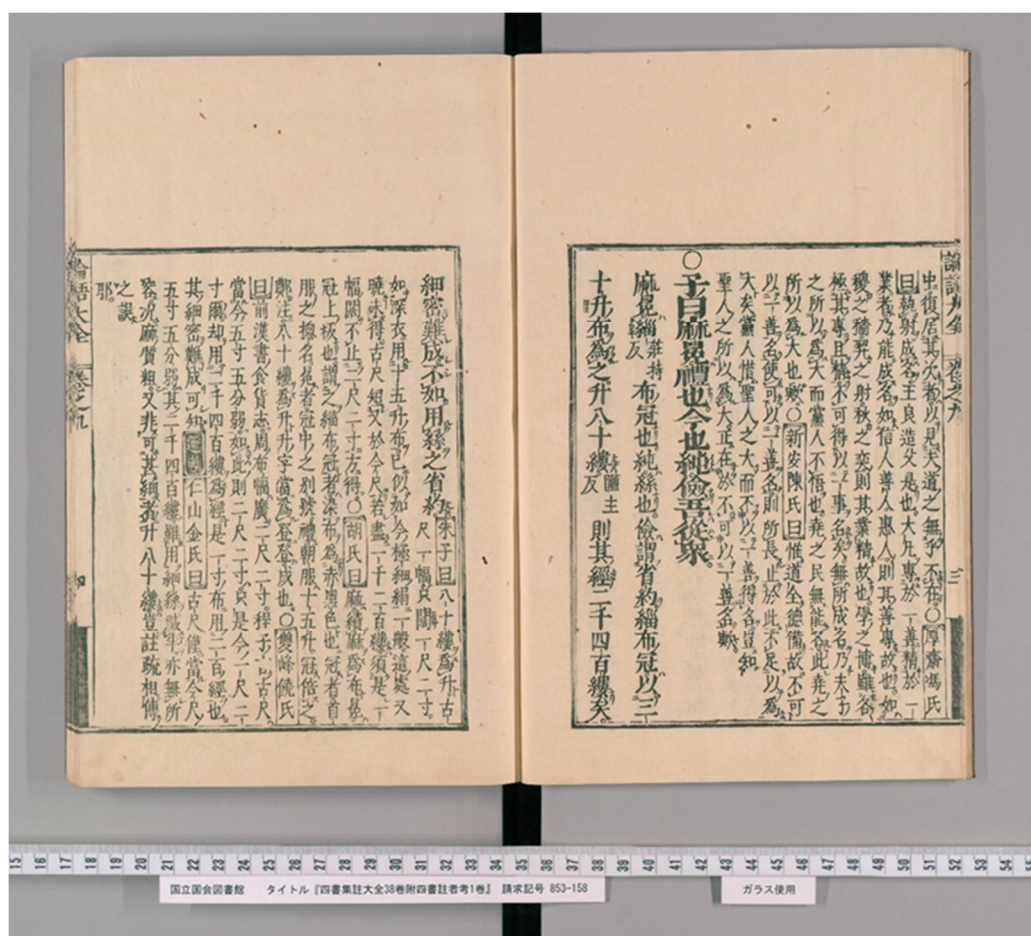 論語大全 卷之九 三
中復居其次者以見夫道之無乎不在○厚齋馮氏
曰執射成名王良造父是也大凡專於一善精於一
業者乃能成名如信人善人惠人則其善專故也如
稷之穡羿之射秋之奕則其業精故也學之博雖各
極其專且精不可得以一事名矣無所成名乃夫子
之所以爲大而黨人不悟也堯之民無能名此堯之
所以爲大也歟○新安陳氏曰惟道全德備故不可
以一善名使可以一善名則所長止於此不足以爲
大矣黨人惜聖人之大而不以一善得名豈知
聖人之所以爲大正在於不可以一善名歟
○子曰麻冕禮也今也純儉吾從衆
麻冕緇莊持反布冠也純絲也儉謂省約緇布冠以三
十升布爲之升八十縷龍主反則其經二千四百縷矣
細密難成不如用絲之省約朱子曰八十縷爲升古尺一幅只闊一尺二寸
如深衣用十五升布已似如今極細絹一般這處又
曉未得古尺短又於今尺若盡一千二百縷須是一
幅闊不止二尺二寸方得○胡氏曰麻績麻爲布冕
冠上板也謂之緇布冠者染布爲赤黑色也冠者首
服之總名冕者冠中之別號禮朝服十五升冠倍之
鄭注八十縷爲升升字當爲登登成也○雙峰饒氏
曰前漢書食貨志周布幅廣二尺二寸程子言古尺
當今五寸五分弱如此則二尺二寸只是今一尺二
寸爾却用二千四百縷爲經是一寸布用二百經也
其細密難成可知仁山金氏曰古尺僅當今尺
五寸五分弱其二千四百縷雖用細絲織成亦無所
容况麻質粗又非可其細者升八十縷豈註疏相傳
之誤
耶
論語大全 卷之九 四
15 16 17 18 19 20 21 22 23 24 25 26 27 28 29 30 31 32 33 34 35 36 37 38 39 40 41 42 43 44 45 46 47 48 49 50 51 52 53 54
国立国会図書館 タイトル『四書集註大全38巻附四書註者考1巻』 請求記号 853-158
ガラス使用